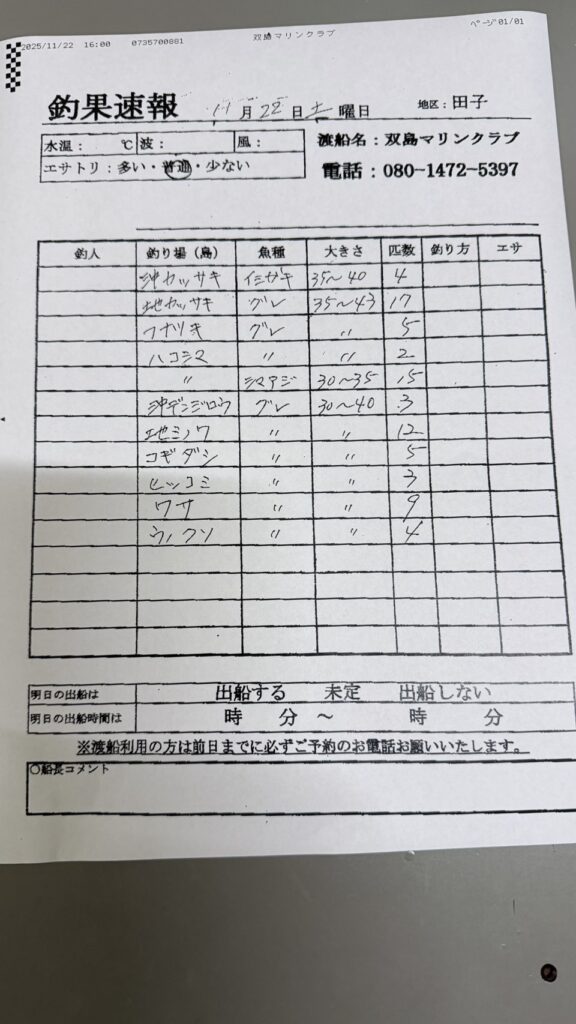 2025/11/22 16:00 0735700881 双島マリンクラブ ページ 01/01
釣果速報 11月22日土曜日 地区：田子
水温： ℃ 波： 風：
エサトリ：多い・普通・少ない
渡船名：双島マリンクラブ
電話：080-1472-5397
釣人 釣り場（島） 魚種 大きさ 匹数 釣り方 エサ
沖カッサキ イシガキ 35～40 4
地カッサキ グレ 35～43 17
フナツキ グレ 〃 5
ハコシマ 〃 〃 2
〃 シマアジ 30～35 15
沖デンジロウ グレ 30～40 3
地ミノワ 〃 〃 12
コギダシ 〃 〃 5
ヒッコミ 〃 〃 3
ワサ 〃 〃 9
ウノクソ 〃 〃 4
明日の出船は 出船する 未定 出船しない
明日の出船時間は 時 分 ～ 時 分
※渡船利用の方は前日までに必ずご予約のお電話お願いいたします。
○船長コメント